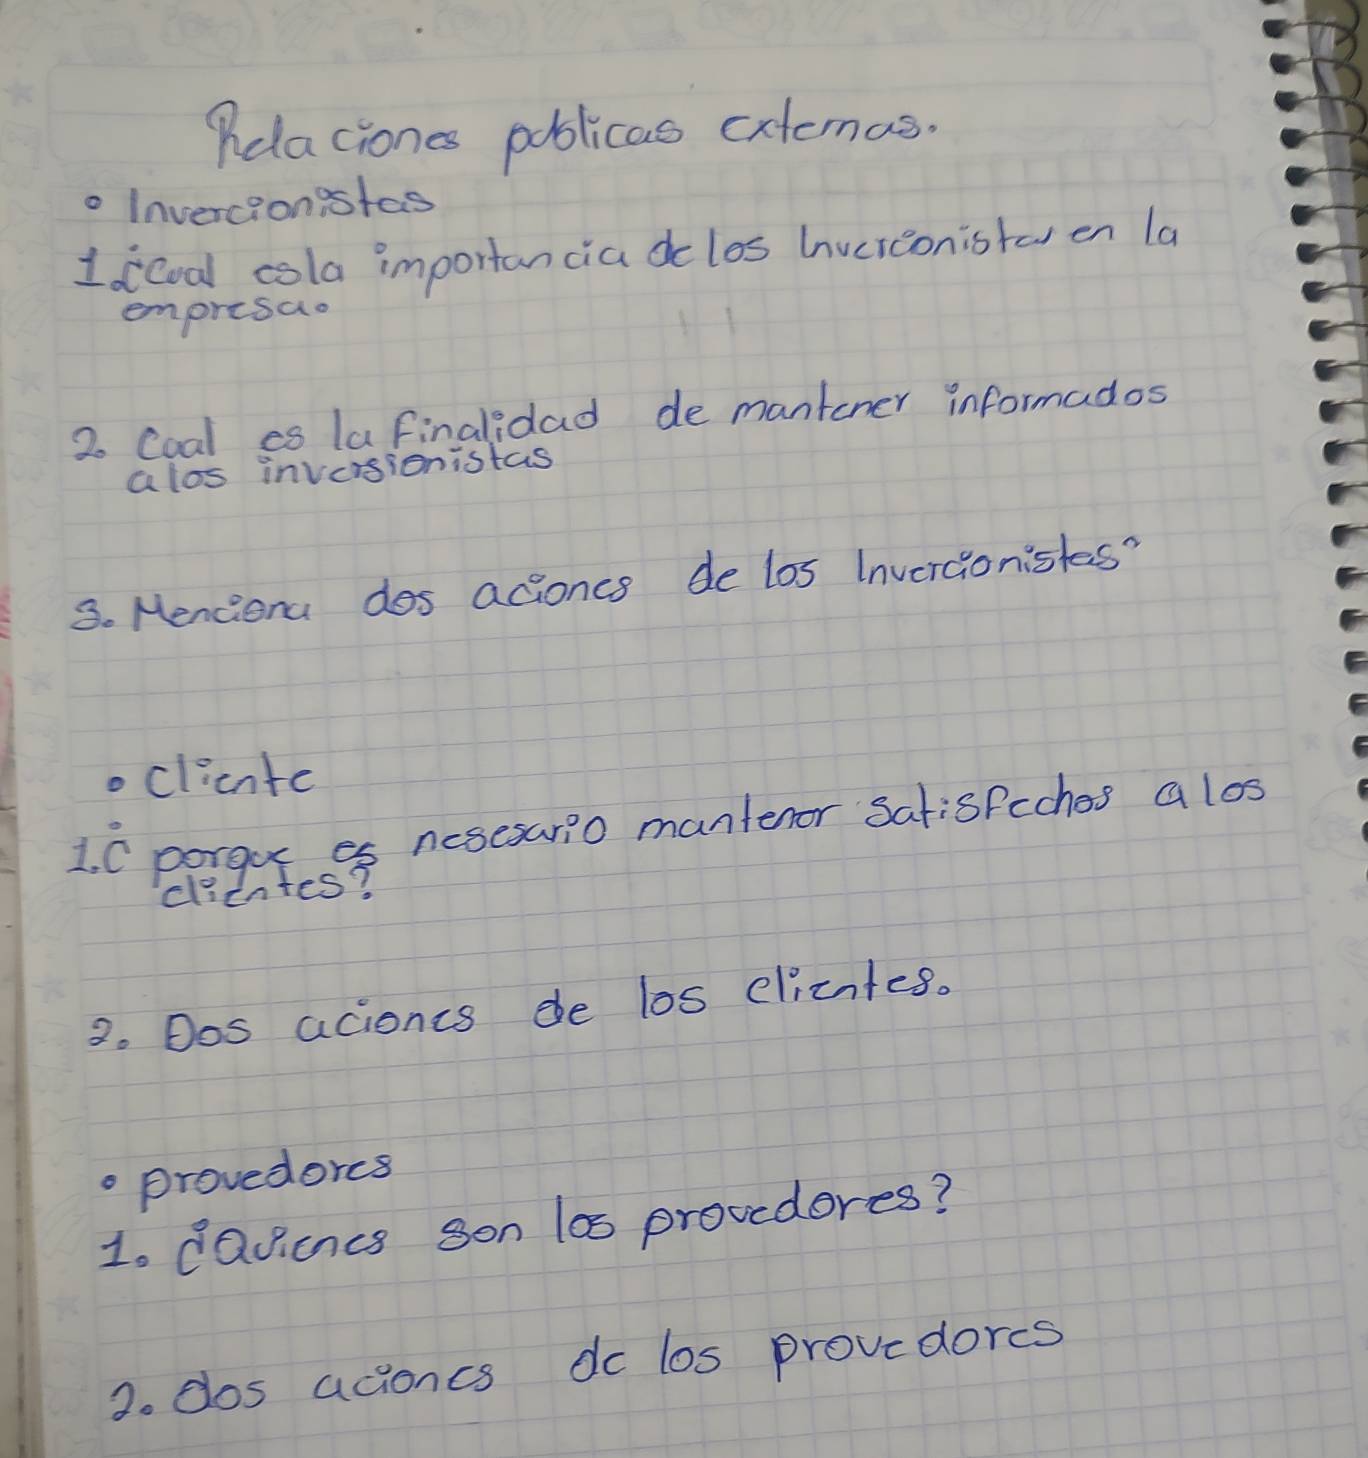 Relaciones publicas externas.
• Invercionistas
1. ¿Cual es la importancia de los Invercionistas en la
empresa.
2. Cual es la finalidad de mantener informados
a los inversionistas
3. Menciona dos aciones de los Invercionistas?
• Cliente
1. ¿ porque es nesesario mantener satisfechos a los
clientes?
2. Dos aciones de los clientes.
• provedores
1. ¿Quienes son los provedores?
2. dos aciones de los provedores